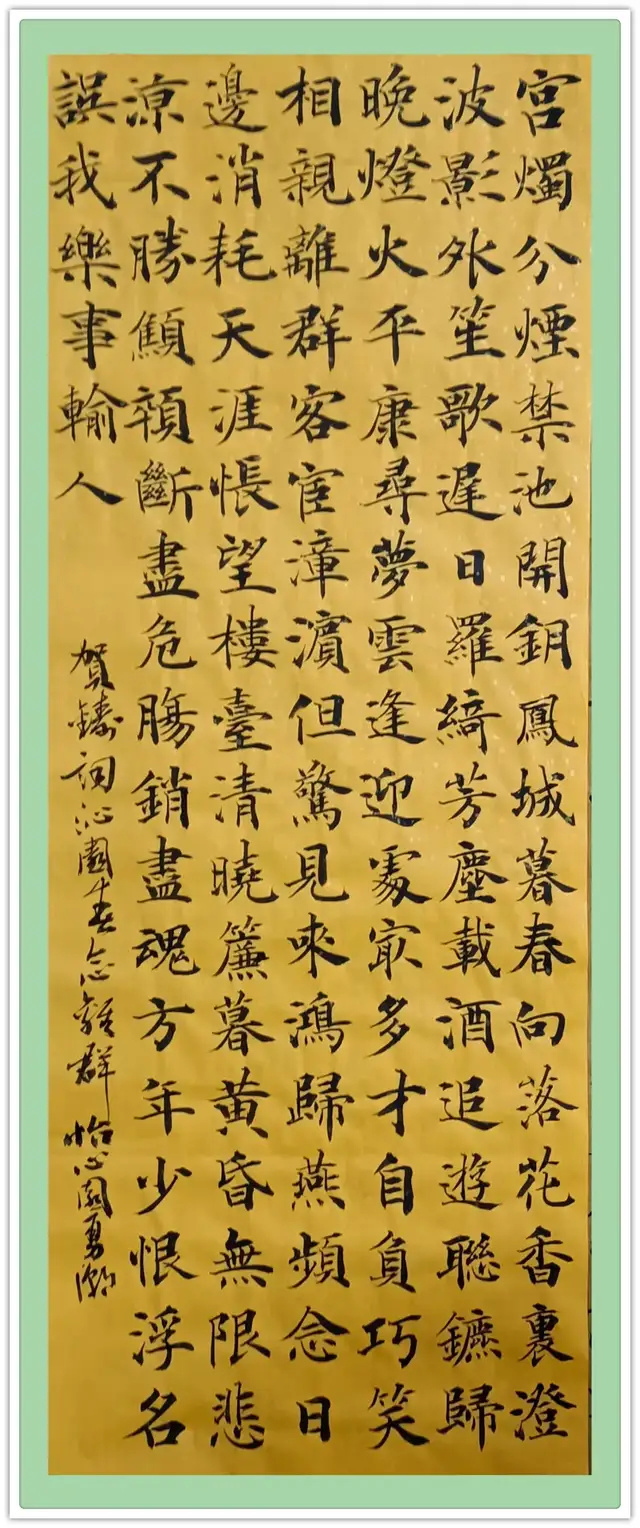 宮燭分煙禁池開鈅鳳城暮春向落花香裏澄
波影外笙歌遲日羅綺芳塵載酒追遊聯鑣歸
晚燈火平康尋夢雲逢迎處冣多才自負巧笑
相親離群客宦漳濵但驚見來鴻歸燕頻念日
邊消耗天涯悵望樓臺清曉簾暮黃昏無限悲
涼不勝顦顇斷盡危腸銷盡魂方年少恨浮名
誤我樂事輸人
賀鑄詞沁園春念離群 怡心園勇潮